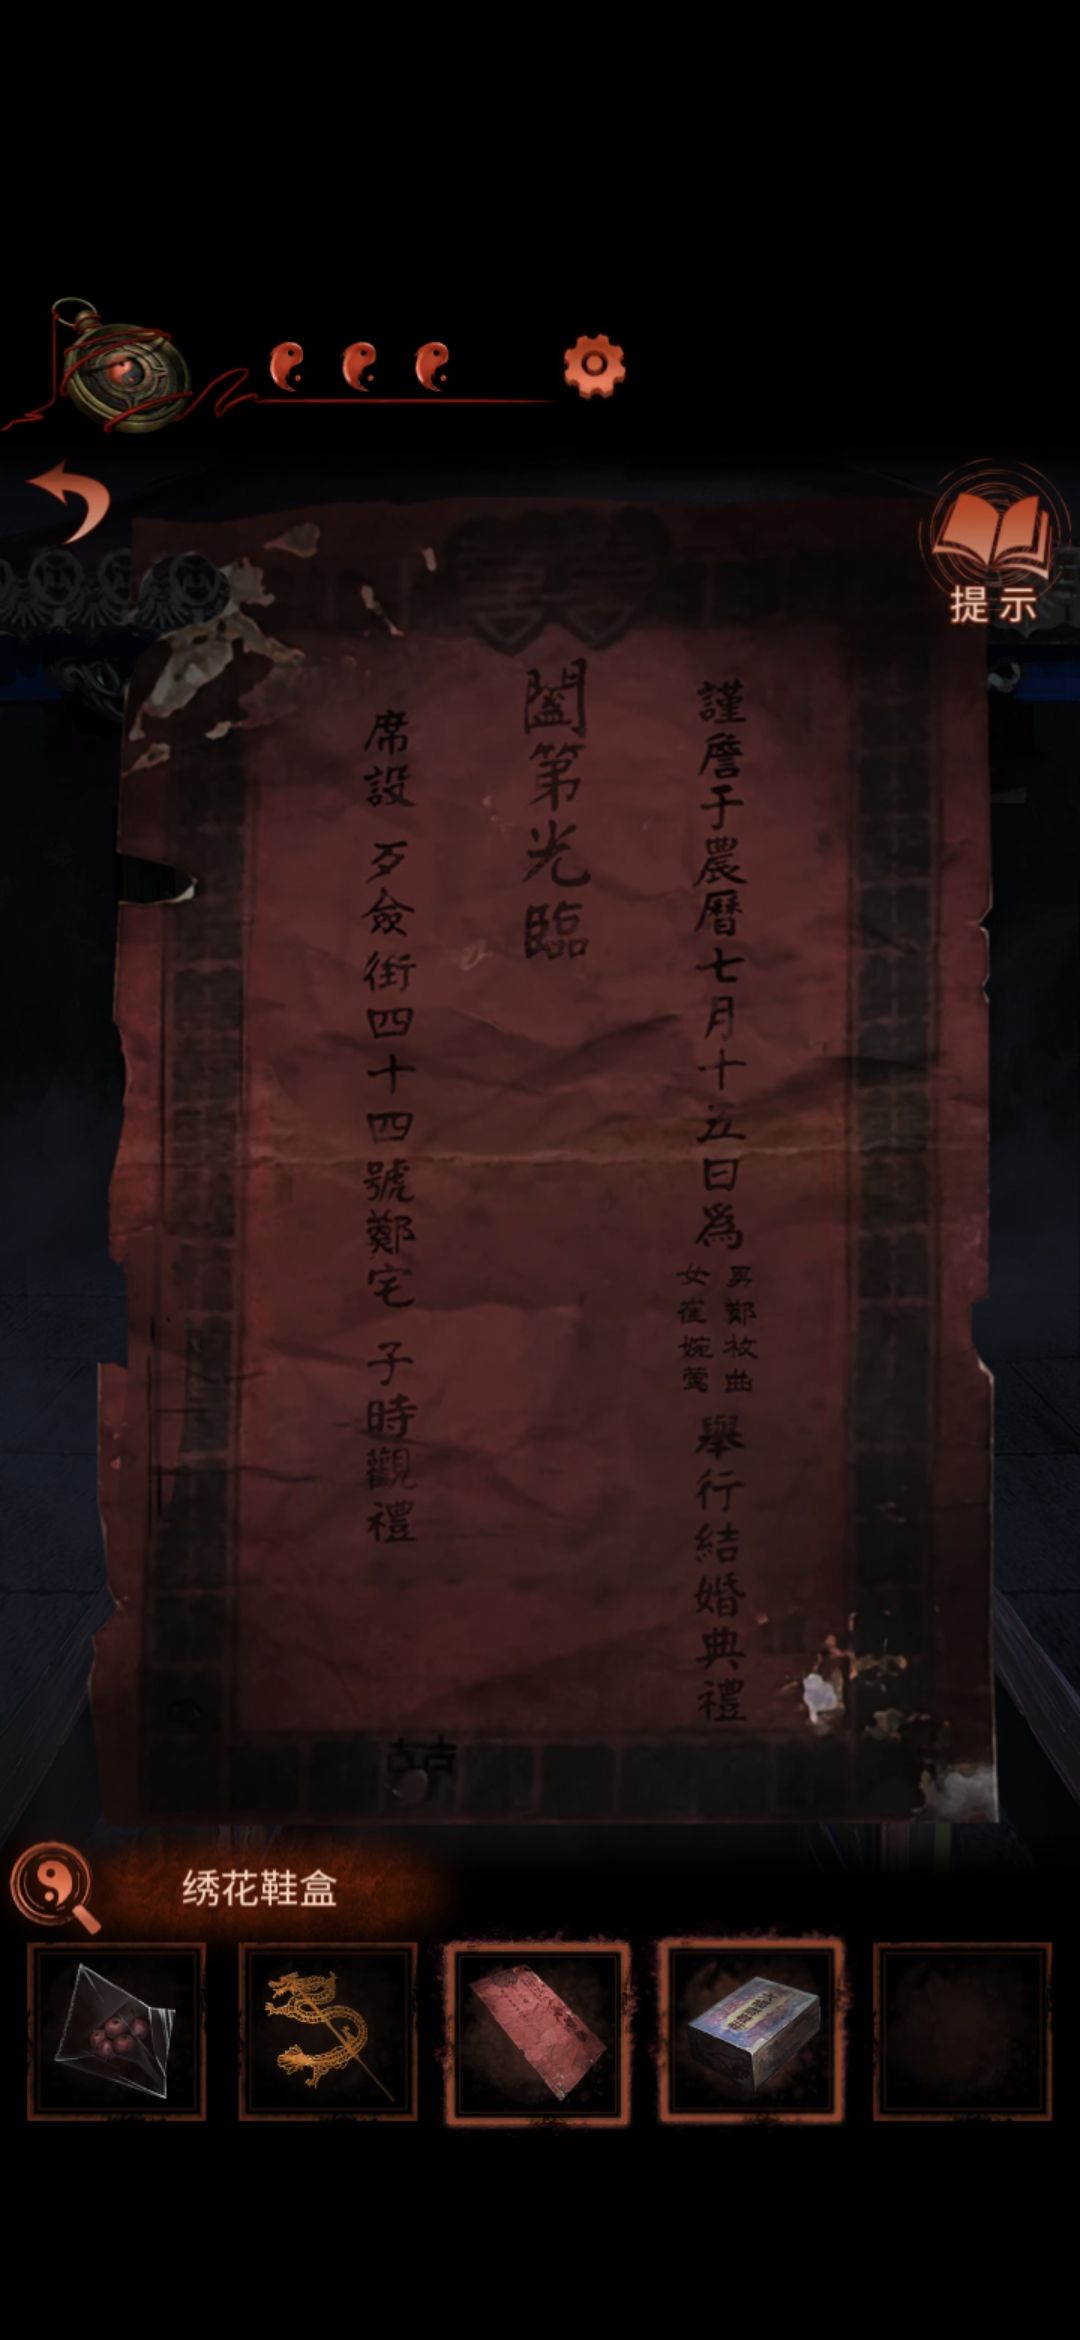 提示
謹詹于農曆七月十五日為
男鄭枚曲
女崔婉鶯
舉行結婚典禮
闔第光臨
席設 歹僉街四十四號鄭宅 子時觀禮
绣花鞋盒